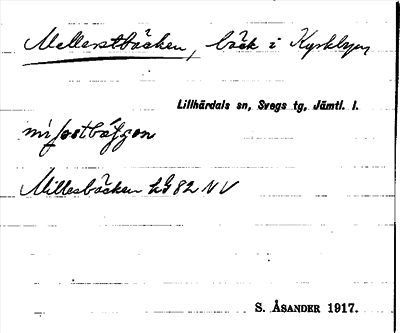 Mellerstbäcken, bäck i Kyrkbyn
Lillhärdals sn, Svegs tg, Jämtl. l.
Millesbäcken 82 NV
S. ÅSANDER 1917.